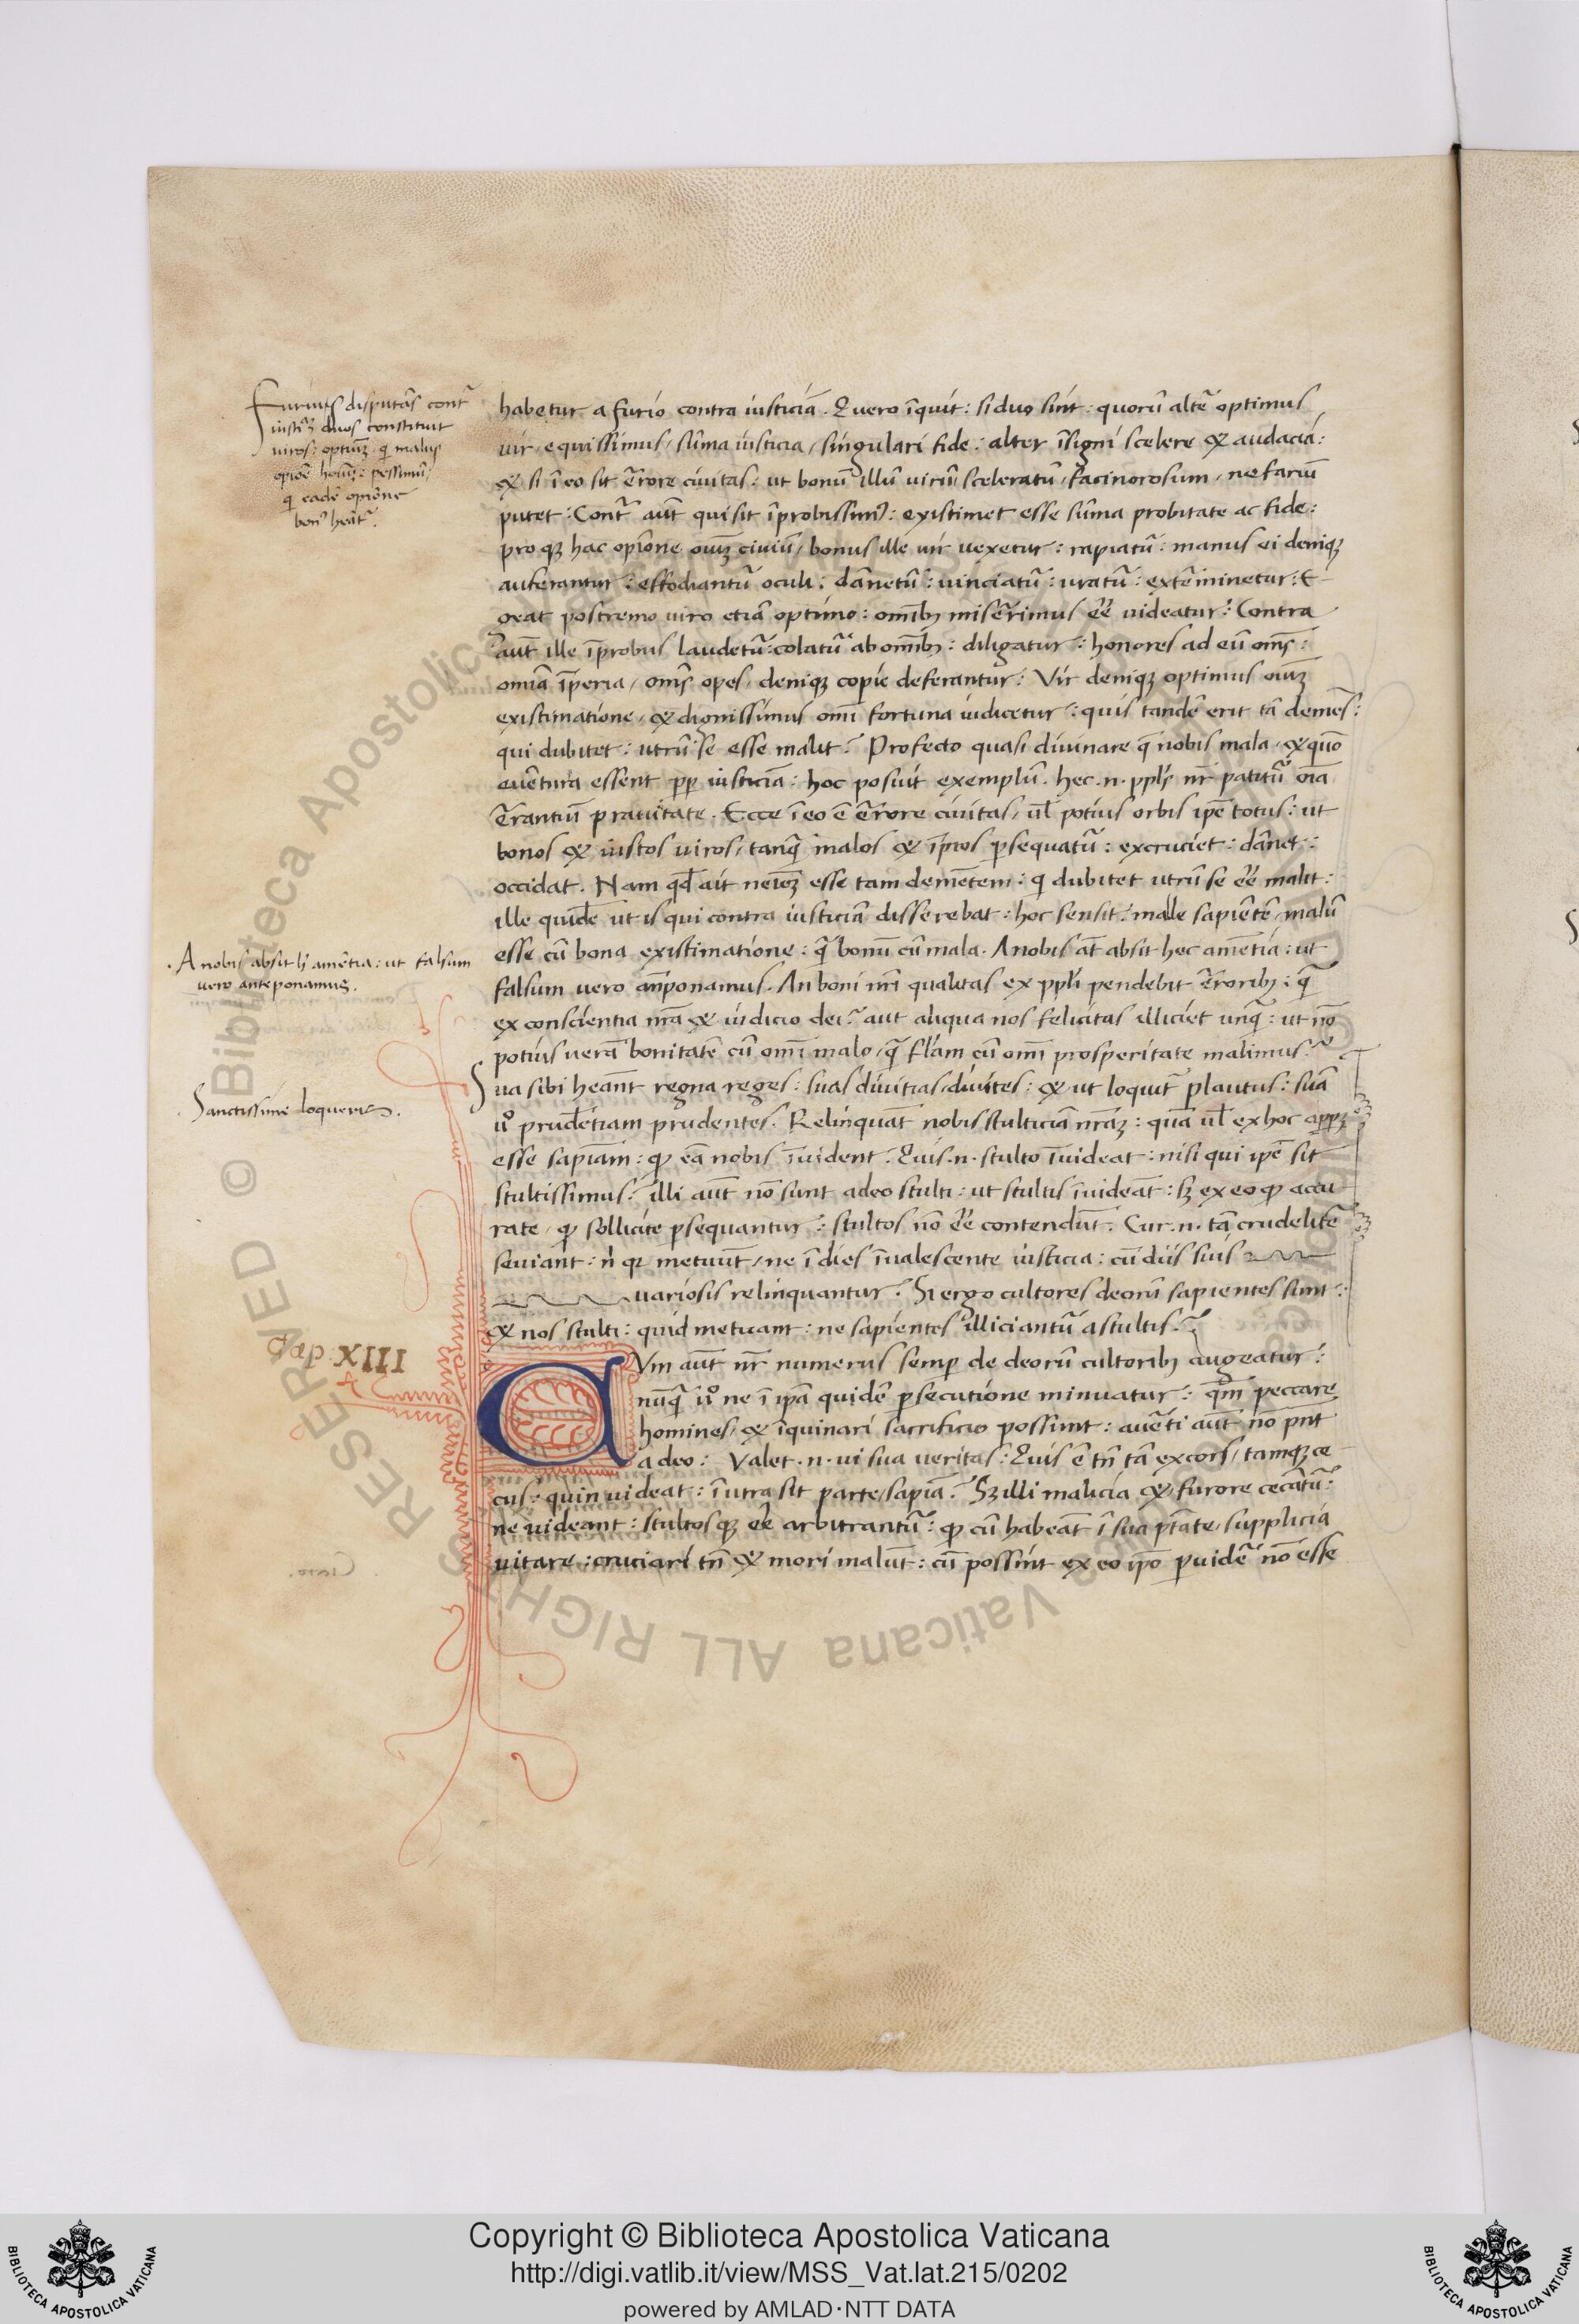 Furius disputās contᷓ
iusticiā duos constituit
uiros: optimū q̄ malus
opiōe hoīum: pessimū
q̄ eadē opiōne
bonꝰ heātᷓ.
habetur a furio contra iusticiā. Quero īquit: si duo sint: quorū altē optimus
uir, equissimus, sūma iusticia, singulari fide: alter īsigni scelere & audacia:
& si ī eo sit ērrore ciuitas: ut bonū illū uirū, sceleratū, facinorosum, nefariū
putet: Contᷓ aūt qui sit īprobissimꝰ: existimet esse sūma probitate ac fide:
proqꝫ hac opiōne oīuꝫ ciuiū, bonus ille uir uexetur: rapiatᷓ: manus ei deniqꝫ
auferantur: effodiantᷓ oculi: dānetᷓ: uinciatᷓ: uratᷓ: extēminetur: E-
geat postremo uiro etiā optimo: omībꝫ misērimus eē uideatur: Contra
aūt ille īprobus laudetᷓ: colatᷓ ab omībꝫ: diligatur: honores ad eū omīs:
omīa īperia, omīs opes, deniqꝫ copie deferantur: Vir deniqꝫ optimus oīuꝫ
existimatione, & dignissimus omī fortuna iudicetur: quis tandē erit tā demēs:
qui dubitet: utrū se esse malit? Profecto quasi diuinare q̄ nobis mala, & quō
euētura essent ꝓp iusticiā: hoc posuit exemplū. hec .n. ppls nr̄ patitᷓ oīa
ērrantiū prauitate. Ecce ī eo ē ērrore ciuitas, ul̄ potius orbis ip̄e totus: ut
bonos & iustos uiros, tanq̄ malos & īpios ꝑsequatᷓ: excruciet: dānet:
occidat. Nam qd̄ ait neīeꝫ esse tam demētem: q̄ dubitet utrū se eē malit:
ille quidē ut is qui contra iusticiā disserebat: hoc sensit: malle sapiētē, malū
esse cū bona existimatione: q̄ bonū cū mala. A nobis āt absit hec amētia: ut
falsum uero an̄ponamus. An boni nr̄i qualitas ex ppli pendebit ērroribꝫ: q̄
ex conscientia nr̄a & iudicio dei? aut aliqua nos felicitas illiciet unq̄: ut nō
potius uerā bonitatē cū omī malo, q̄ fl̄am cū omī prosperitate malimus?
.A nobis absit h̄ amētia: ut falsum
uero anteponamus.
Sua sibi heānt regna reges: suas diuitias diuites: & ut loquitᷓ plautus: suā
.Sanctissime loqueris.
uº prudētiam prudentes. Relinquāt nobis stulticiā nr̄aꝫ: quā ul̄ ex hoc appꝫ
esse sapīam: qꝫ eā nobis īuident. Quis .n. stulto īuideat: nisi qui ip̄e sit
stultissimus? illi aūt nō sunt adeo stulti: ut stultis īuideāt: sꝫ ex eo qꝫ accu
rate, qꝫ sollicite ꝑsequantur: stultos nō eē contendūt. Cur .n. tā crudelitē
seuiant: nͥ qꝫ metuūt, ne ī dies īualescente iusticia: cū diis suis
uariosis relinquantur? Si ergo cultores deorū sapientes sunt:
& nos stulti: quid metuant: ne sapientes illiciantᷓ a stultis?
Cap. XIII
CVm aūt nr̄ numerus semꝑ de deorū cultoribꝫ augeatur:
nūq̄ uº ne ī ip̄a quidē ꝑsecutione minuatur: qm̄ peccare
homines, & īquinari sacrificio possunt: auēti aūt nō pn̄t
a deo: Valet .n. ui sua ueritas: Quis ē tn̄ tā excors, tamqꝫ ce
cus: quin uideat: ī utra sit parte, sapīa? Sꝫ illi malicia & furore cecātᷓ:
ne uideant: stultosqꝫ eē arbitrantᷓ: qꝫ cū habeāt ī sua ptāte, supplicia
uitare: cruciari tn̄ & mori malūt: cū possint ex eo ip̄o ꝑuidē nō esse
© Biblioteca Apostolica Vaticana ALL RIGHTS RESERVED
BIBLIOTECA APOSTOLICA VATICANA
Copyright © Biblioteca Apostolica Vaticana
http://digi.vatlib.it/view/MSS_Vat.lat.215/0202
powered by AMLAD·NTT DATA
BIBLIOTECA APOSTOLICA VATICANA